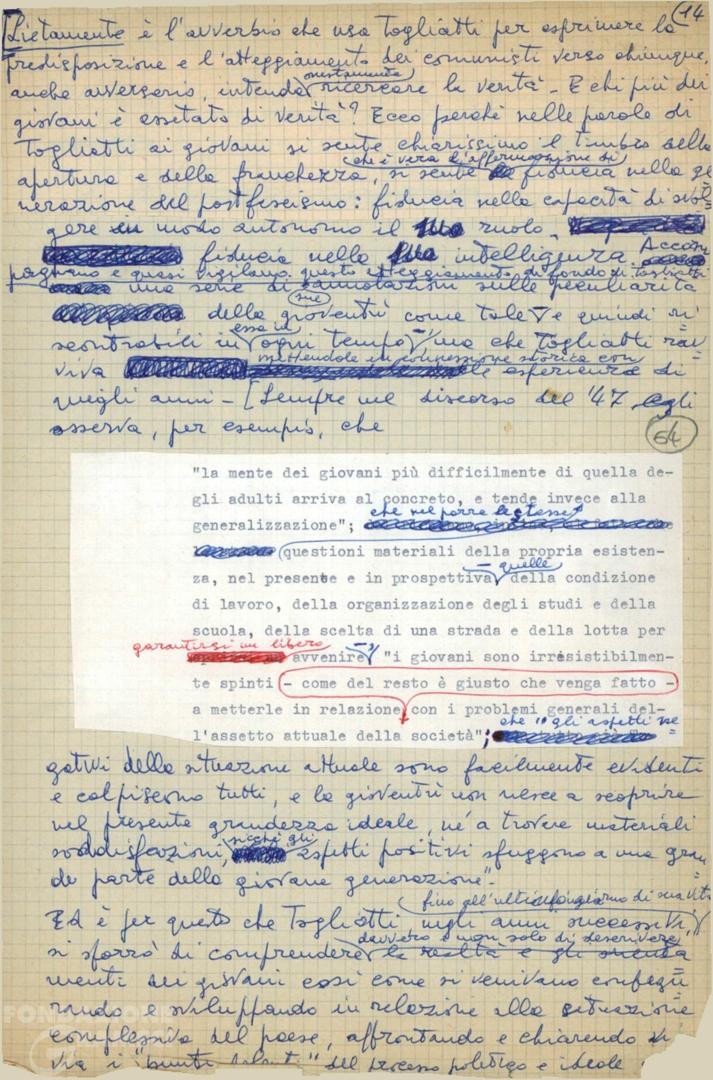 14
[Lietamente è l'avverbio che usa Togliatti per esprimere la
predisposizione e l'atteggiamento dei comunisti verso chiunque,
onestamente
anche avversario, intenda ricercare la verità - E chi più dei
giovani è assetato di verità? Ecco perché nelle parole di
Togliatti ai giovani si sente chiarissimo il timbro della
che è vera l'affermazione di
apertura e della franchezza, si sente fiducia nella ge=
nerazione del postfascismo: fiducia nella capacità di svol=
gere in modo autonomo il suo ruolo,
fiducia nella sua intelligenza. Accom=
pagnano e quasi vigilano questo atteggiamento di fondo di Togliatti
una serie di annotazioni sulle peculiarità
sue
della gioventù come tale - e quindi ri=
essa in
scontrabili in ogni tempo - ma che Togliatti rav=
mettendole in connessione storica con
viva le esperienze di
quegli anni - [Sempre nel discorso del '47 egli
osserva, per esempio, che
64
"la mente dei giovani più difficilmente di quella de-
gli adulti arriva al concreto, e tende invece alla
che nel porre le stesse
generalizzazione";
questioni materiali della propria esisten-
- quelle
za, nel presente e in prospettiva, della condizione
di lavoro, della organizzazione degli studi e della
scuola, della scelta di una strada e della lotta per
garantirsi un libero
avvenire - "i giovani sono irresistibilmen-
te spinti - come del resto è giusto che venga fatto -
a metterle in relazione con i problemi generali del-
che "gli aspetti ne=
l'assetto attuale della società";
gativi della situazione attuale sono facilmente evidenti
e colpiscono tutti, e la gioventù non riesce a scoprire
nel presente grandezza ideale, né a trovare materiali
sicché gli
soddisfazioni, aspetti positivi sfuggono a una gran=
de parte della giovane generazione".
fino all'ultimo giorno di sua vita
Ed è per questo che Togliatti negli anni successivi,
davvero e non solo di descrivere
si sforzò di comprendere la realtà e gli orienta
menti dei giovani così come si venivano configu
rando e sviluppando in relazione alla situazione
complessiva del paese, affrontando e chiarendo vi
via i "punti dolenti" del processo politico e ideale